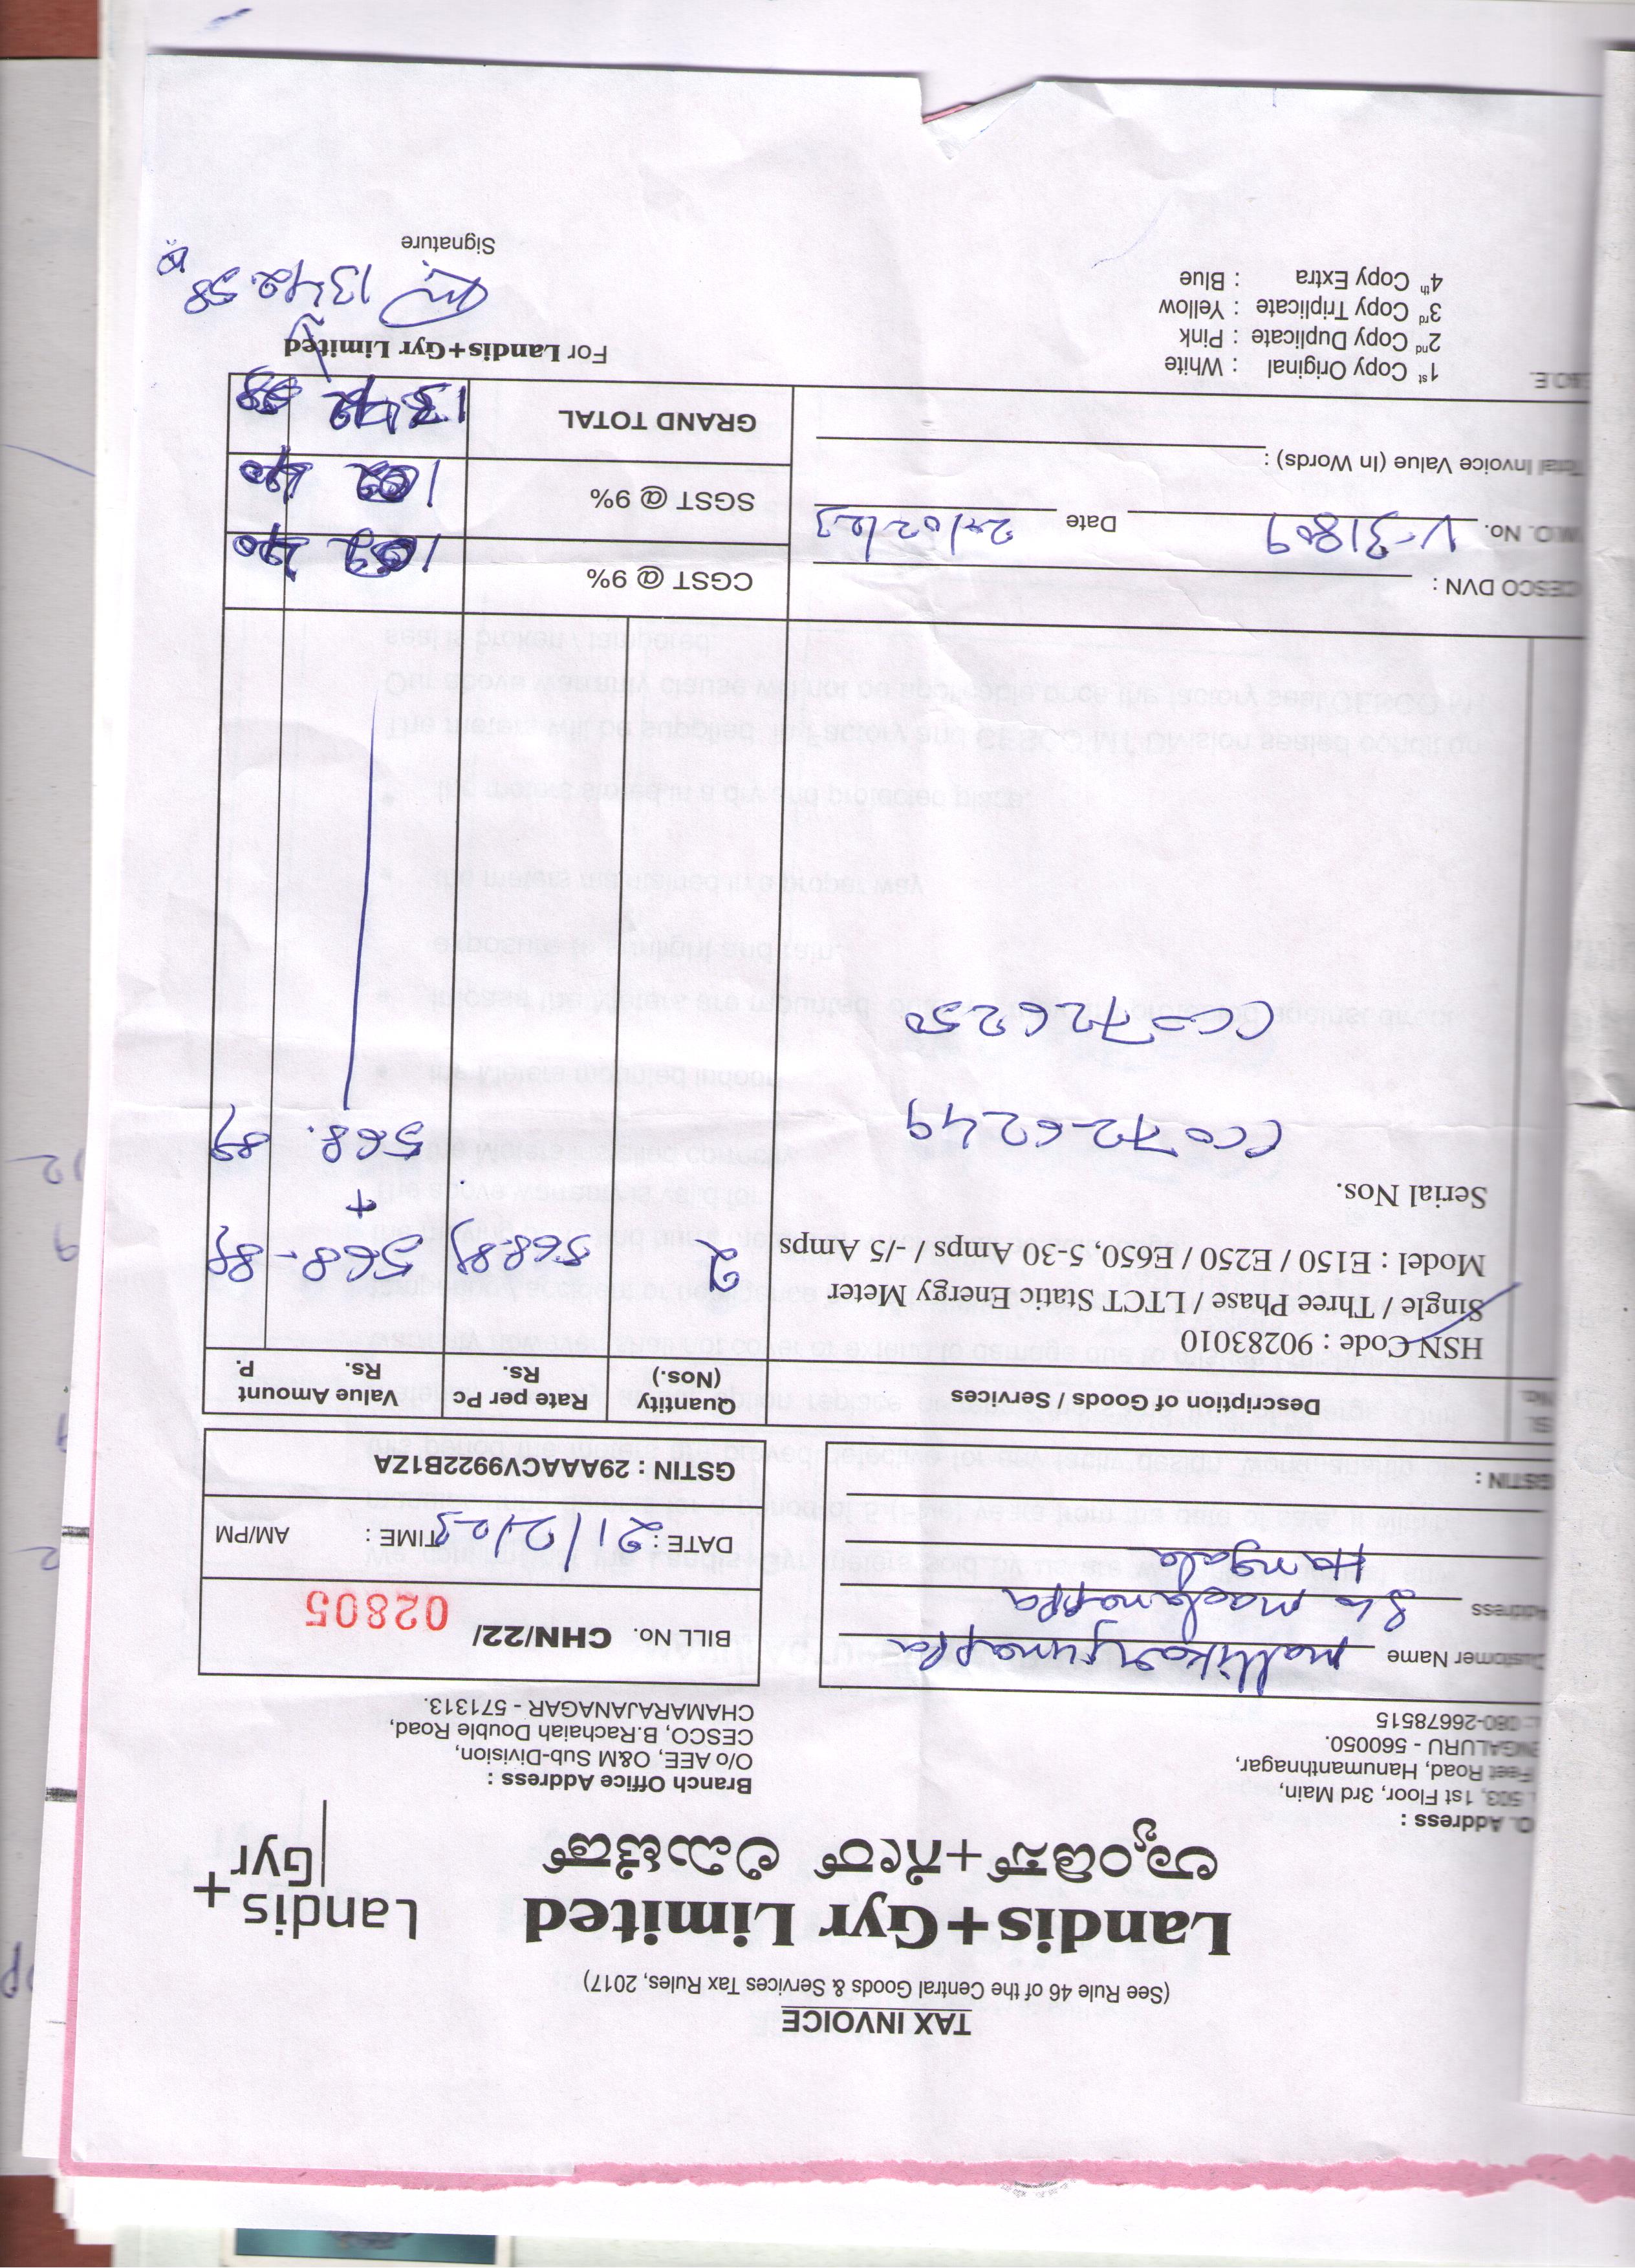 TAX INVOICE
(See Rule 46 of the Central Goods & Services Tax Rules, 2017)
Landis+Gyr Limited
ಲ್ಯಾಂಡಿಸ್+ಗೇರ್ ಲಿಮಿಟೆಡ್
Landis+
Gyr
O. Address :
503, 1st Floor, 3rd Main,
Feet Road, Hanumanthnagar,
NGALURU - 560050.
: 080-26678515
Branch Office Address :
O/o AEE, O&M Sub-Division,
CESCO, B.Rachaiah Double Road,
CHAMARAJANAGAR - 571313.
Customer Name Mallikarjunappa
Address S/o madanappa
Hangala
GSTIN :
BILL No. CHN/22/ 02805
DATE : 21/2/23 TIME : AM/PM
GSTIN : 29AAACV9922B1ZA
Sl. No. Description of Goods / Services Quantity (Nos.) Rate per Pc Rs. Value Amount Rs. P.
HSN Code : 90283010
Single / Three Phase / LTCT Static Energy Meter
Model : E150 / E250 / E650, 5-30 Amps / -/5 Amps
2 568.89 568- 89
+
Serial Nos.
CC0726249 568. 89
CC0726250
CESCO DVN :
CGST @ 9% 102 40
W.O. No. V-31809 Date 21/02/23
SGST @ 9% 102 40
Total Invoice Value (In Words) :
GRAND TOTAL 1342 58
E&O.E.
1st Copy Original : White
2nd Copy Duplicate : Pink
3rd Copy Triplicate : Yellow
4th Copy Extra : Blue
For Landis+Gyr Limited
1342.58
Signature